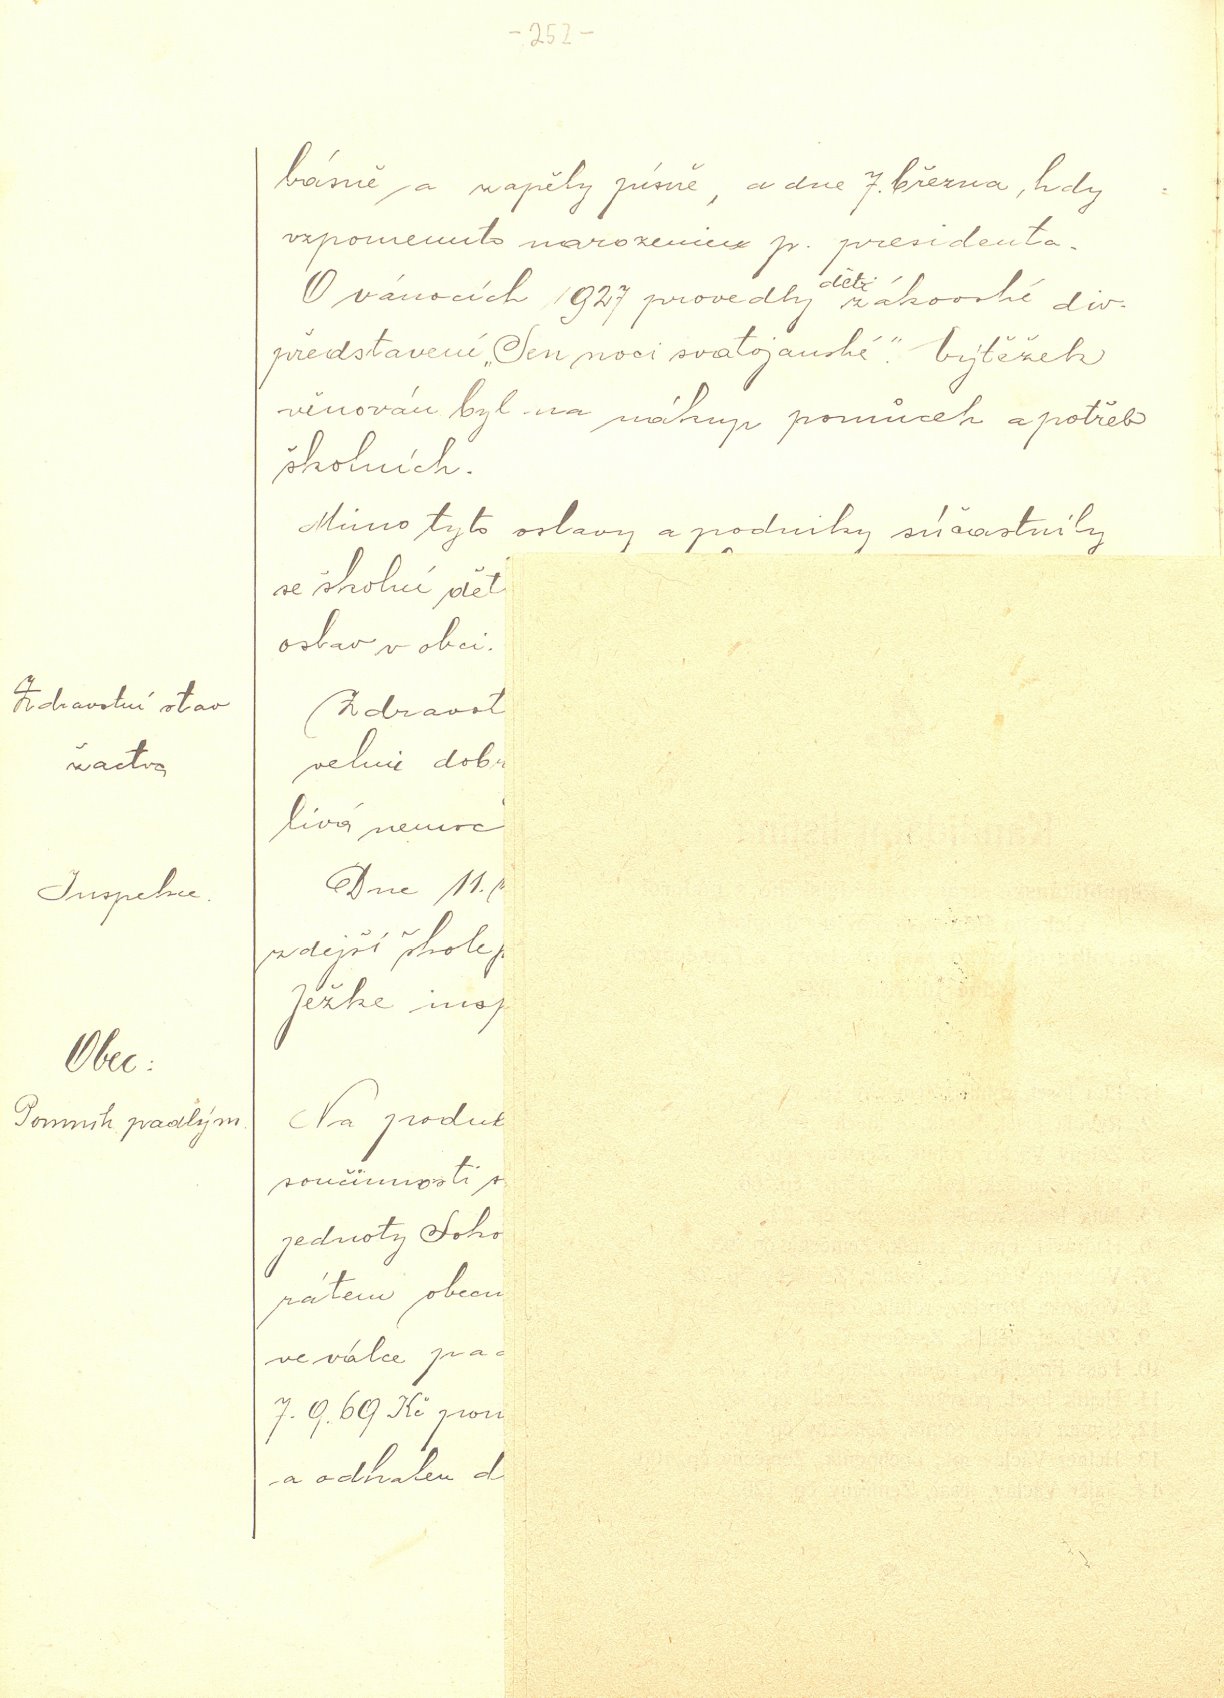 - 252 -
básně a zapěly písně, a dne 7. března, kdy
vzpomenuto narozenin p. presidenta.
O vánocích 1927 provedly děti žákovské div.
představení „Sen noci svatojanské". Výtěžek
věnován byl na nákup pomůcek a potřeb
školních.
Mimo tyto oslavy a podniky súčastnily
se školní dět
oslav v obci.
Zdravotní stav
žactva
Zdravot
velmi dob
livá nemoc
Inspekce.
Dne 11.
zdejší škole
Ježke insp
Obec:
Pomník padlým.
Na podně
součinnosti s
jednoty Soko
rátem obecn
ve válce pa
7.969 Kč pom
a odhalen d